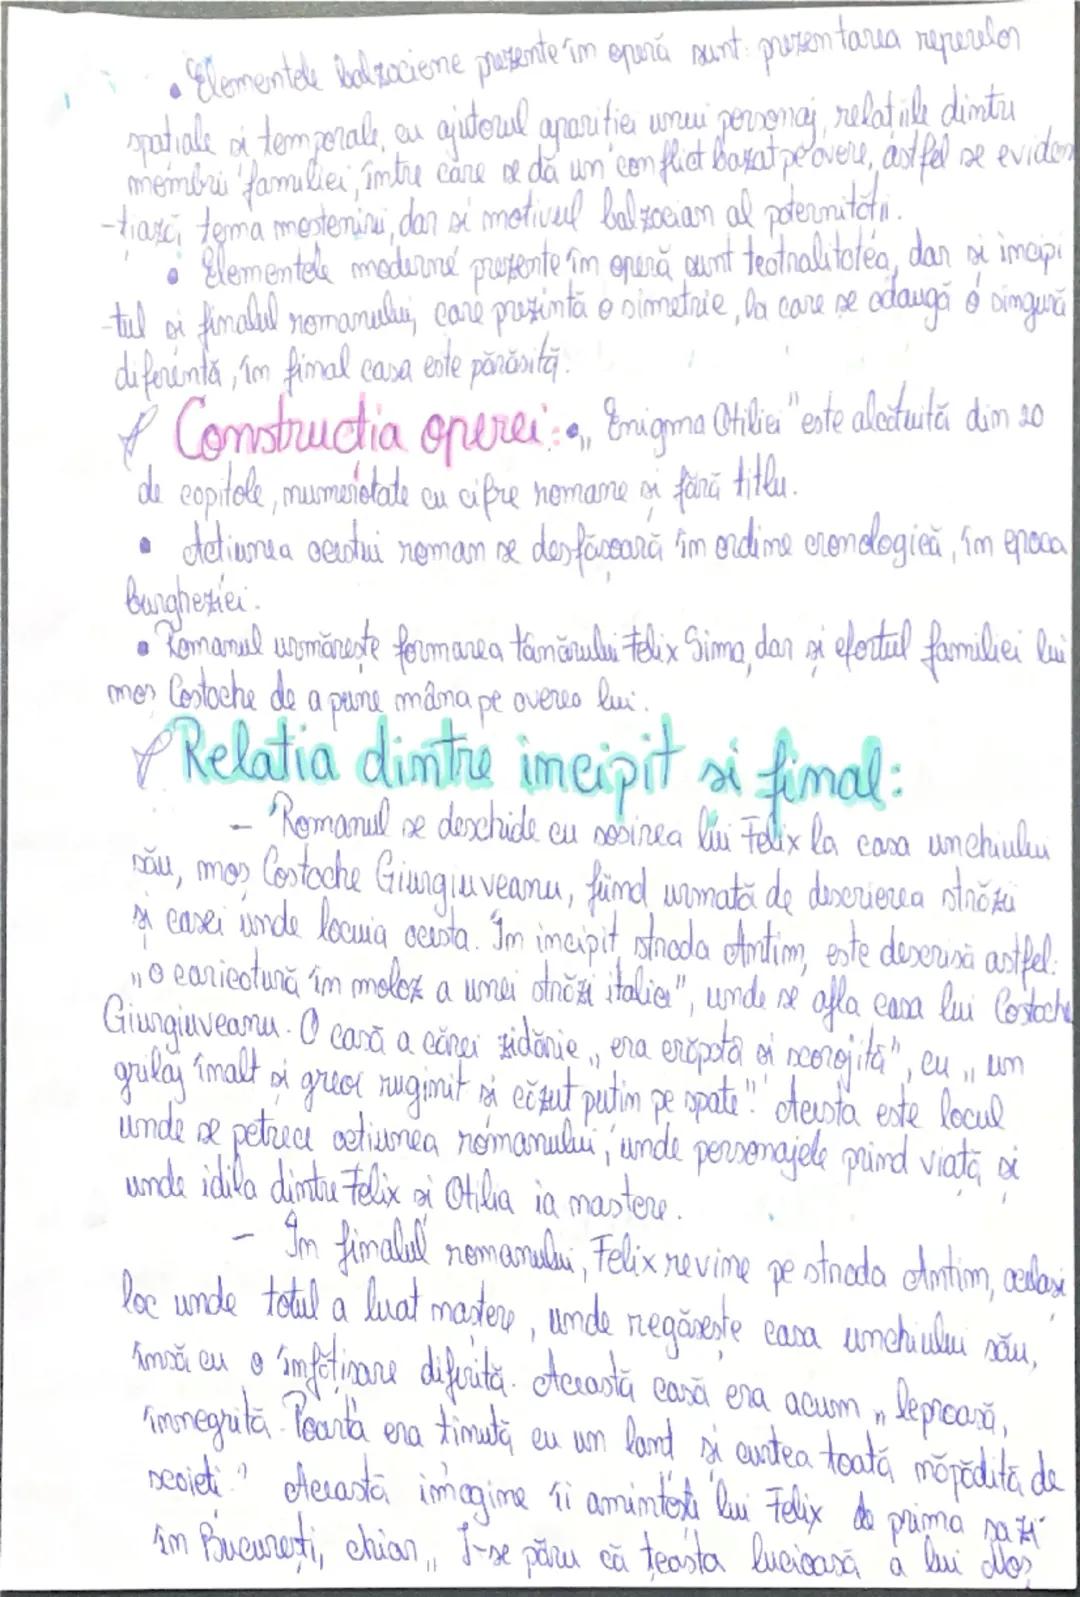 • Elementele balzaciene prezente în operă sunt: prezentarea reperelor
spațiale și temporale, cu ajutorul apariției unui personaj, relațiile dintre
membrii familiei, între care se dă un conflict bazat pe avere, astfel se eviden
-tiază, tema moștenirii, dar și motivul balzacian al paternității.
• Elementele moderne prezente în operă sunt teatralitatea, dar și incipi
-tul și finalul romanului, care prezintă o simetrie, la care se adaugă o singură
diferență, în final casa este părăsită.
Construcția operei: • „Enigma Otiliei" este alcătuită din 20
de capitole, numerotate cu cifre romane și fără titlu.
• Acțiunea acestui roman se desfășoară în ordine cronologică, în epoca
burgheziei.
• Romanul urmărește formarea tânărului Felix Sima, dar și efortul familiei lui
moș Costache de a pune mâna pe averea lui.
Relația dintre incipit si final:
- Romanul se deschide cu sosirea lui Felix la casa unchiului
său, moș Costache Giurgiuveanu, fiind urmată de descrierea străzii
și casei unde locuia acesta. În incipit, strada Antim, este descrisă astfel:
„o caricatură în moloz a unei străzi italice", unde se afla casa lui Costache
Giurgiuveanu. O casă a cărei zidărie „era crăpată și scorojită", cu „un
grilaj înalt și greoi ruginit și căzut puțin pe spate". Acesta este locul
unde se petrece acțiunea romanului, unde personajele prind viață, și
unde idila dintre Felix și Otilia ia naștere.
- În finalul romanului, Felix revine pe strada Antim, același
loc unde totul a luat naștere, unde regăsește casa unchiului său,
însă cu o înfățișare diferită. Această casă era acum „leproasă,
înnegrită. Poarta era ținută cu un lanț și curtea toată năpădită de
scaieți." Această imagine îi amintește lui Felix de prima sa zi
în București, chiar „I-se păru că țeasta lucioasă a lui Moș